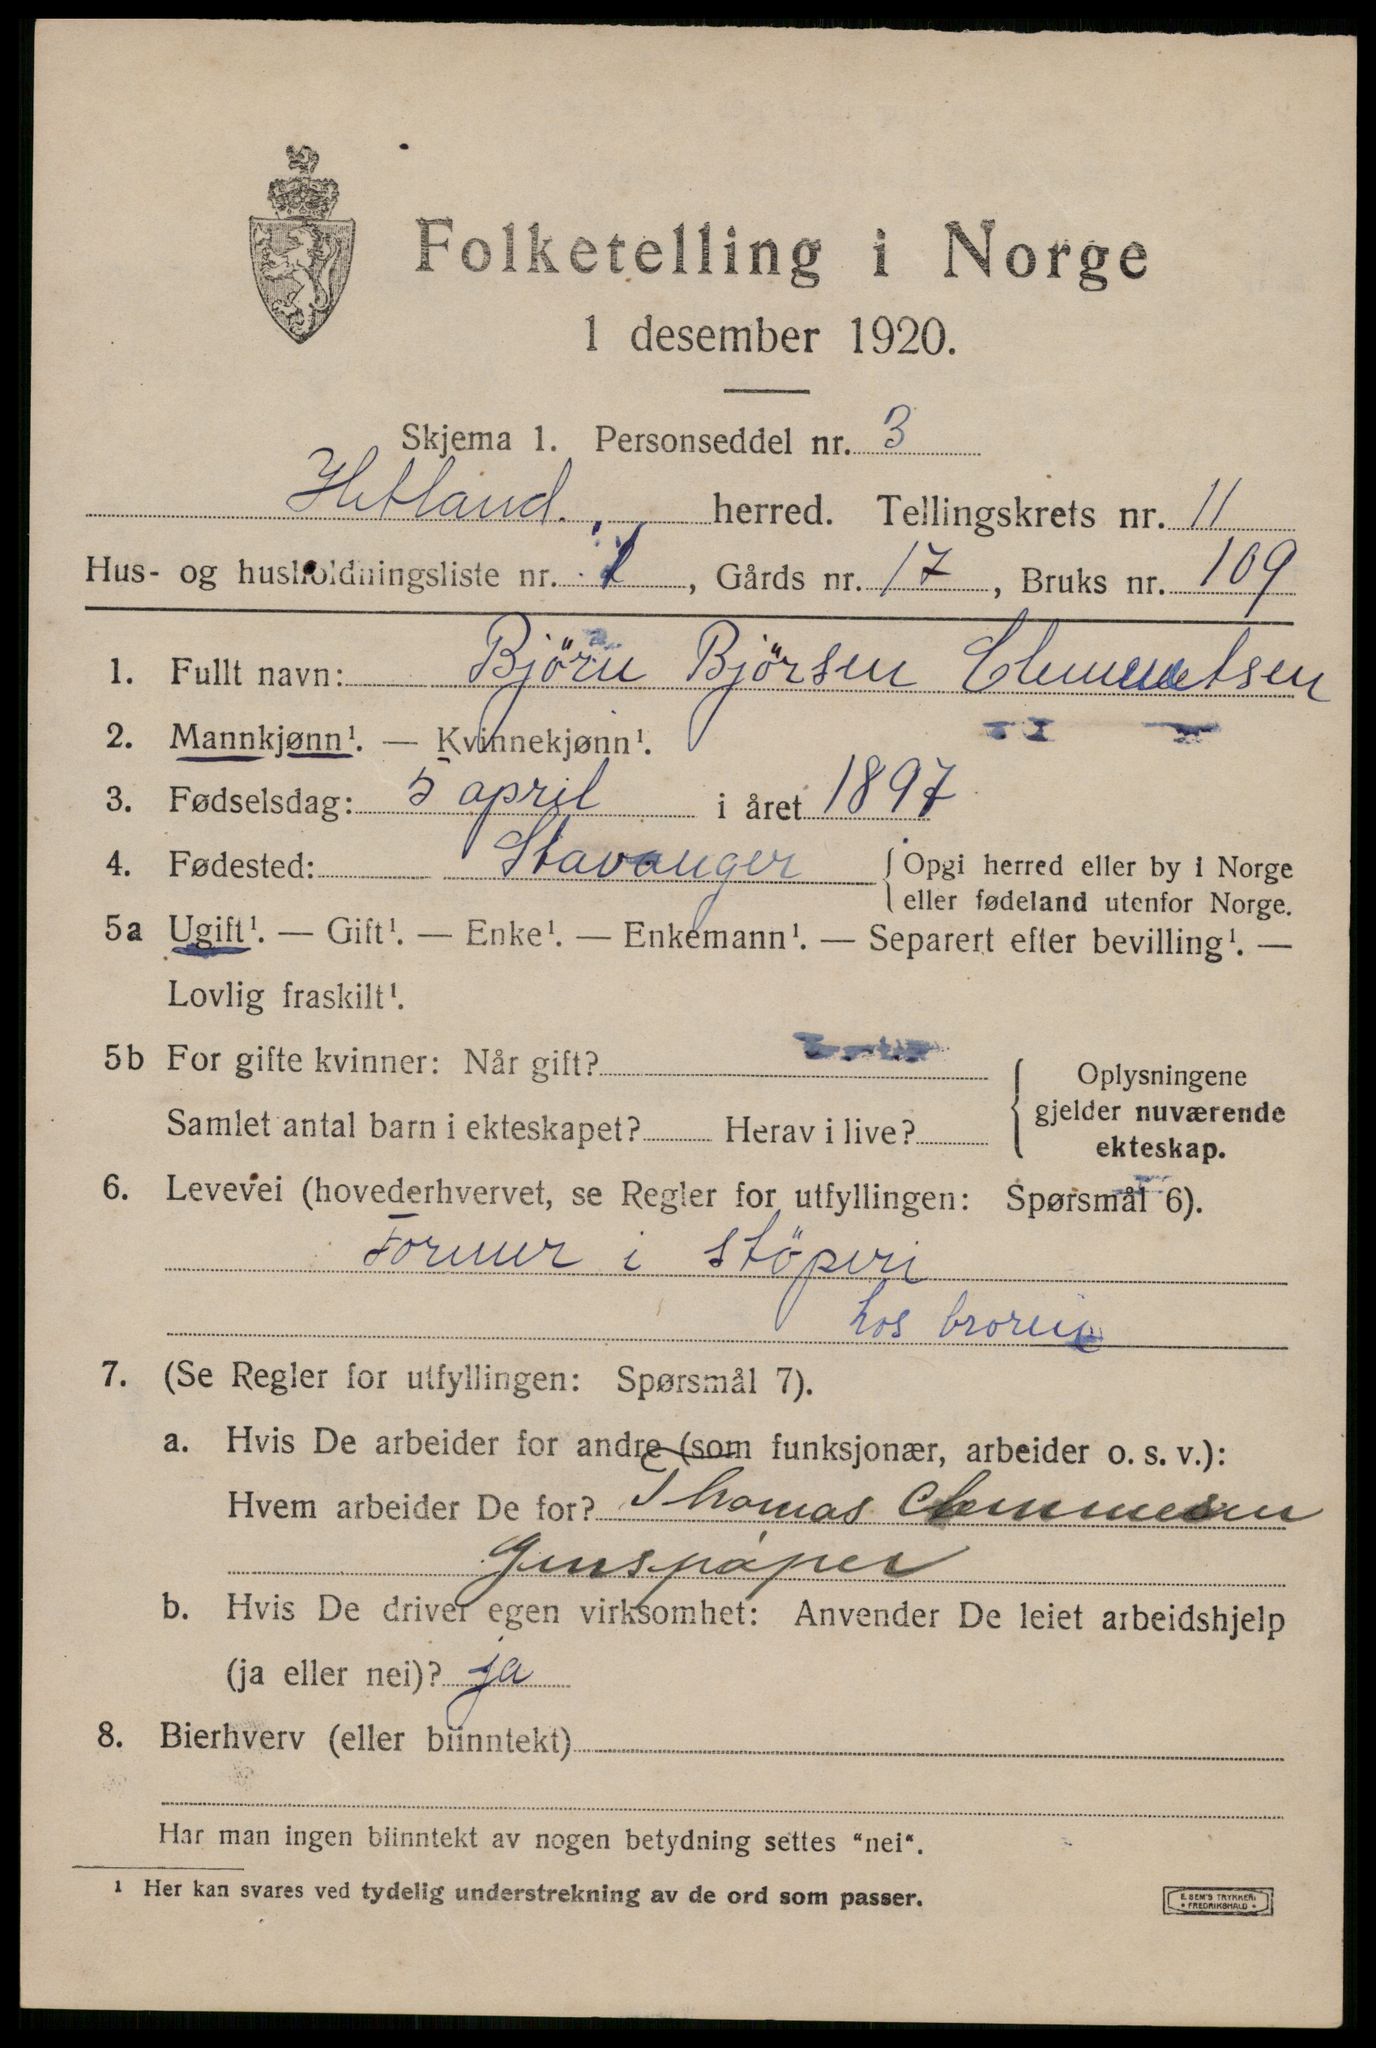 Folketelling i Norge
1 desember 1920.
Skjema 1. Personseddel nr. 3
Hetland. herred. Tellingskrets nr. 11
Hus- og husholdningsliste nr. 1, Gårds nr. 17, Bruks nr. 109
1. Fullt navn: Björn Björsen Clemmetsen
2. Mannkjønn¹. — Kvinnekjønn¹.
3. Fødselsdag: 5 april i året 1897
4. Fødested: Stavanger
Opgi herred eller by i Norge
eller fødeland utenfor Norge.
5a Ugift¹. — Gift¹. — Enke¹. — Enkemann¹. — Separert efter bevilling¹. —
Lovlig fraskilt¹.
5b For gifte kvinner: Når gift?
Samlet antal barn i ekteskapet? Herav i live?
Oplysningene
gjelder nuværende
ekteskap.
6. Levevei (hovederhvervet, se Regler for utfyllingen: Spørsmål 6).
Former i stöperi
hos broren
7. (Se Regler for utfyllingen: Spørsmål 7).
a. Hvis De arbeider for andre (som funksjonær, arbeider o. s. v.):
Hvem arbeider De for? Thomas
b. Hvis De driver egen virksomhet: Anvender De leiet arbeidshjelp
(ja eller nei)? ja
8. Bierhverv (eller biinntekt)
Har man ingen biinntekt av nogen betydning settes "nei".
¹ Her kan svares ved tydelig understrekning av de ord som passer.
E. SEM'S TRYKKERI
FREDRIKSHALD